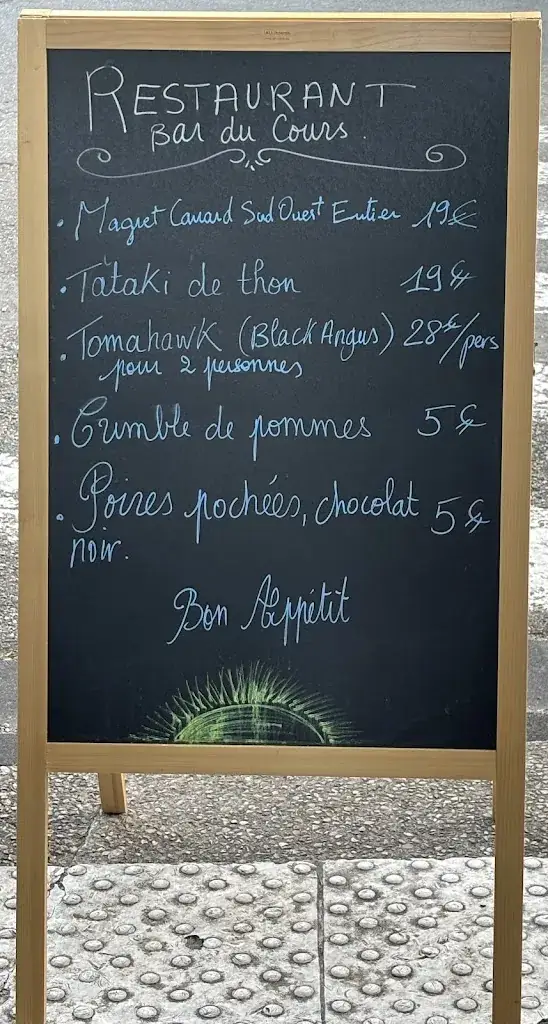 RESTAURANT
Bar du Cours.
• Magret Canard Sud Ouest Entier 19€
• Tataki de thon 19€
• Tomahawk (Black Angus) 28€/pers
pour 2 personnes
• Crumble de pommes 5€
• Poires pochées, chocolat 5€
noir.
Bon Appétit